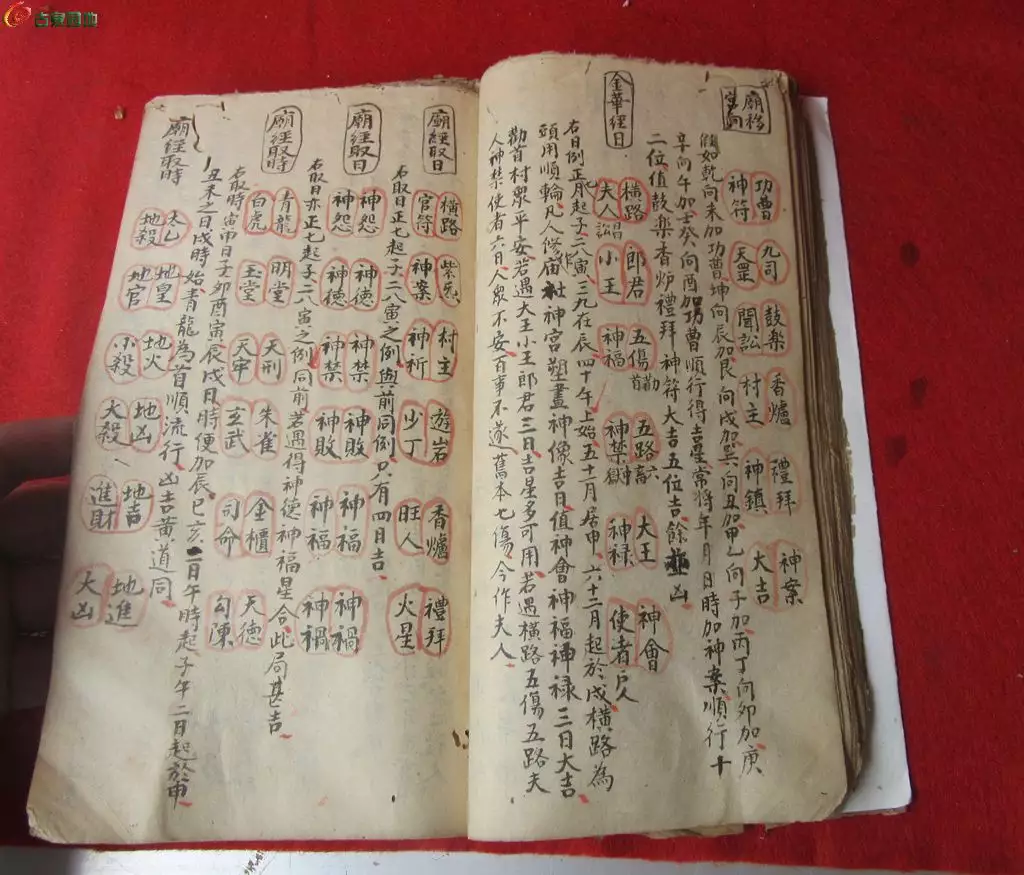 廟移宮向
功曹 九司 鼓樂 香爐 禮拜 神案
神符 天罡 聞訟 村主 神鎮 大吉
假如乾向未加功曹坤向辰加艮向戌加巽向丑加甲乙向子加丙丁向卯加庚
辛向午加壬癸向酉加功曹順行得吉星常將年月日時加神案順行十
二位值鼓樂香炉禮拜神符大吉五位吉餘並凶
金華經日
橫路 郎君 五傷 五路 大王 神會
夫人 小王 神福 神禁 神禄 使者
右日例正七起子二八寅三九在辰四十午上始五十一月居申六十二月起於戌橫路為
頭用順輪凡人修廟社神宮塑畫神像吉日值神會神福神禄三日大吉
勸首村眾平安若遇大王小王郎君三日吉星多可用若遇橫路五傷五路夫
人神禁使者六日人眾不安百事不遂舊本七傷今作夫人
廟經取日
橫路 紫炁 村主 遊岩 香爐 禮拜
官符 神案 神祈 少丁 旺人 火星
右取日正七起子二八寅之例與前同例只有四日吉
廟經取日
神怨 神德 神禁 神敗 神福 神禍
神怨 神德 神禁 神敗 神福 神禍
右取日亦正七起子二八寅之例同前若遇得神德神福星合此局甚吉
廟經取時
青龍 明堂 天刑 朱雀 金櫃 天德
白虎 玉堂 天牢 玄武 司命 勾陳
右取時寅申日子卯酉寅辰戌日時便加辰巳亥二日午時起子午二日起於申
丑未之日戌時始青龍為首順流行凶吉黄道同
廟經取時
太乙 地皇 地火 地凶 地吉 地進
地殺 地官 小殺 大殺 進財 大凶